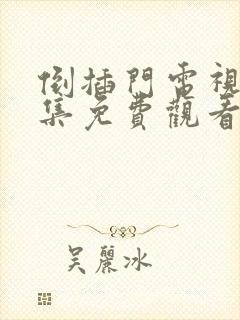 倒插門電視
集免費觀看
吴麗冰